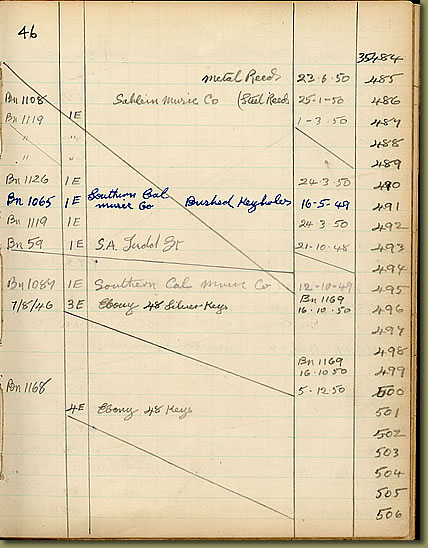 46
35484
metal Reeds 23.6.50 485
Bn 1108 Sablein music Co (Steel Reeds 25-1-50 486
Bn 1119 1E 1-3.50 487
" " 488
" " 489
Bn 1126 1E 24.3.50 490
Bn 1065 1E Southern Cal music Co Bushed Keyholes 16-5-49 491
Bn 1119 1E 24.3.50 492
Bn 59 1E S.A. 21-10-48 493
494
Bn 1087 1E Southern Cal Music Co 12-10-49 495
7/8/46 3E Ebony 48 Silver Keys Bn 1169 16.10.50 496
497
498
Bn 1169
16.10.50 499
Bn 1168 5-12.50 500
4E Ebony 48 Keys 501
502
503
504
505
506